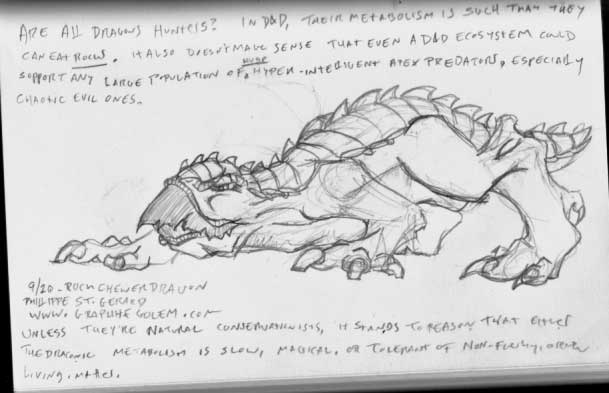 ARE ALL DRAGONS HUNTERS? IN D&D, THEIR METABOLISM IS SUCH THAT THEY
CAN EAT ROCKS. IT ALSO DOESN'T MAKE SENSE THAT EVEN A D&D ECOSYSTEM COULD
SUPPORT ANY LARGE POPULATION OF HUGE HYPER-INTELLIGENT APEX PREDATORS, ESPECIALLY
CHAOTIC EVIL ONES.
9/20 - ROCK CHEWER DRAGON
PHILIPPE ST. GERARD
WWW.GRAPHITEGOLEM.COM
UNLESS THEY'RE NATURAL CONSERVATIONISTS, IT STANDS TO REASON THAT EITHER
THE DRACONIC METABOLISM IS SLOW, MAGICAL, OR TOLERANT OF NON-FLESHY, OR EVEN
LIVING, MATTER.